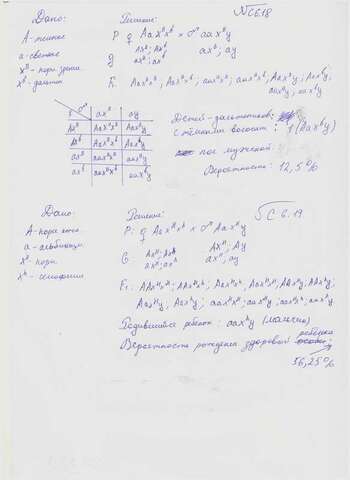 № С6.18
Дано:
Решение:
А-темные
а-светлые
xᴰ- норм. зрение
xᵈ-дальтон.
P ♀ Aaxᴰxᵈ × ♂ aaxᴰy
g Axᴰ; Axᵈ axᴰ; ay
axᴰ; axᵈ
F₁ Aaxᴰxᴰ; Aaxᴰxᵈ; aaxᴰxᴰ; aaxᴰxᵈ; Aaxᴰy; Aaxᵈy;
aaxᴰy; aaxᵈy
♀ ♂ axᴰ ay
Axᴰ Aaxᴰxᴰ Aaxᴰy
Axᵈ Aaxᴰxᵈ Aaxᵈy
axᴰ aaxᴰxᴰ aaxᴰy
axᵈ aaxᴰxᵈ aaxᵈy
Детей-дальтоников:
с тёмными волосами : 1 (Aaxᵈy)
пол мужской
Вероятность: 12,5%
№ С.6.19
Дано:
Решение:
А-норм.
а-альбиносы
xᴴ- норм
xʰ- гемофилия
P: ♀ Aaxᴴxʰ × ♂ Aaxᴴy
G Axᴴ; Axʰ Axᴴ; Ay
axᴴ; axʰ axᴴ; ay
F₁: AAxᴴxᴴ; AAxᴴxʰ; Aaxᴴxʰ; Aaxᴴxᴴ; AAxᴴy; AAxʰy;
Aaxᴴy; Aaxʰy; aaxᴴxᴴ; aaxᴴy; aaxᴴxʰ; aaxʰy
Родившийся ребенок : aaxʰy (мальчик)
Вероятность рождения здоровой ребёнка
56,25%